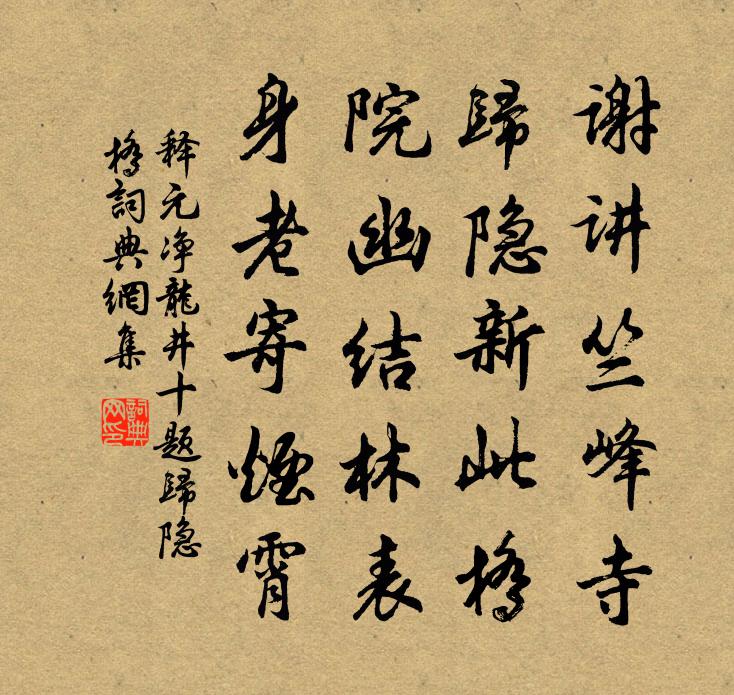 谢讲竺峰寺
歸隐新此橋
院幽结林表
身老寄煙霄
释元净龍井十题歸隐
橋詞典網集
詞典网印